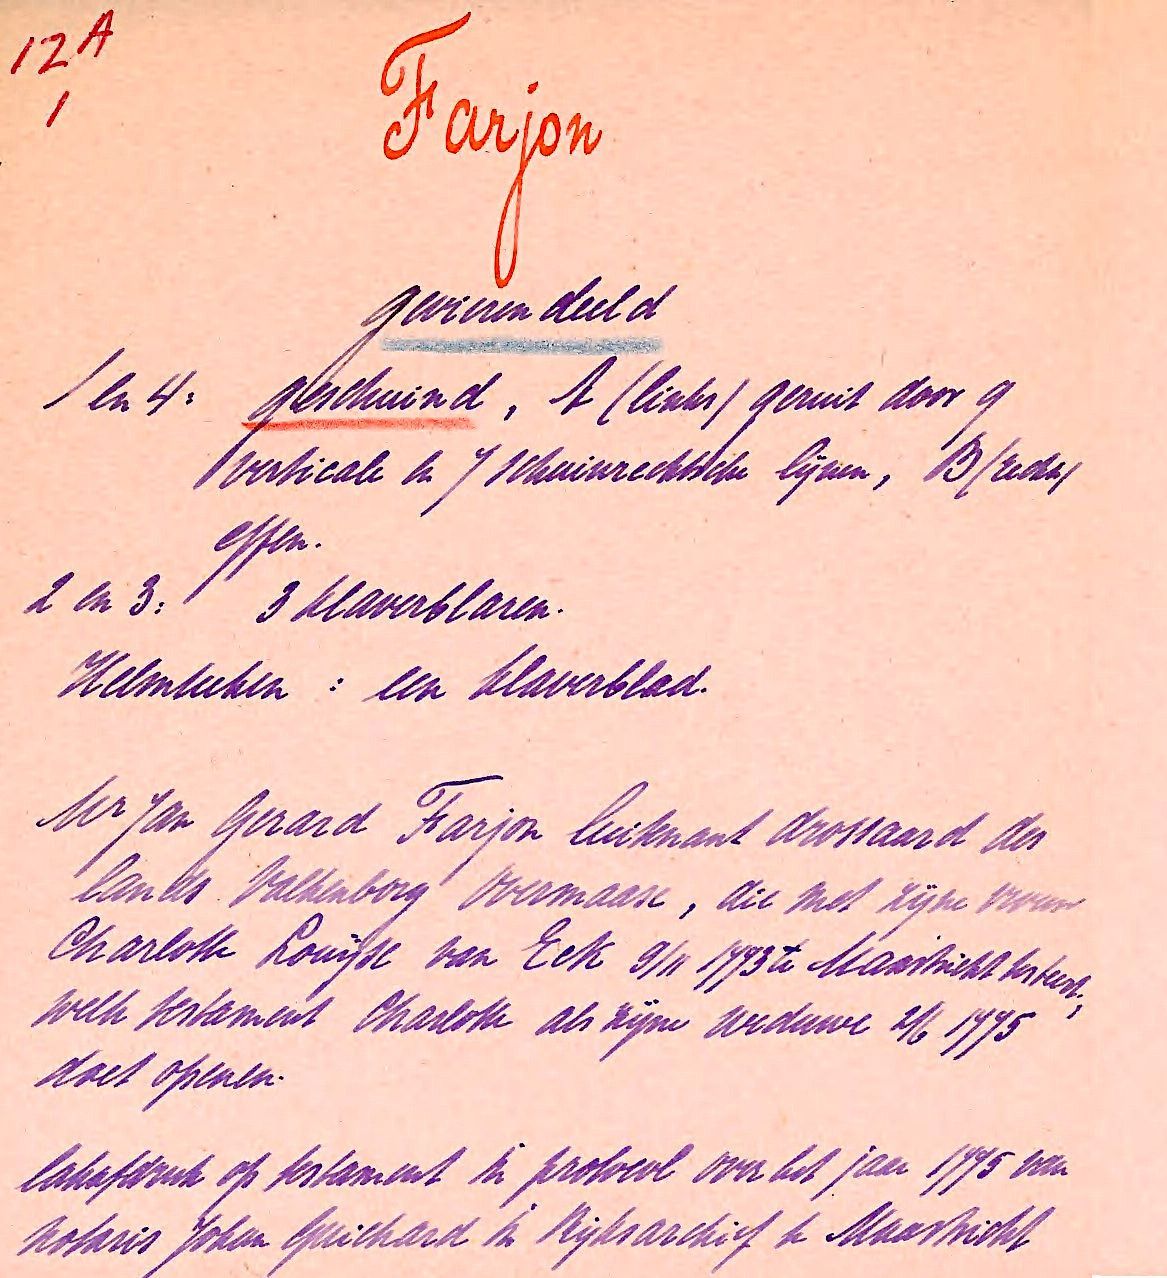 12A
1
Farjon
gevierendeeld
1 en 4: geschuind, A (links) geruit door 9
verticale en 7 schuinrechtsche lijnen, B (rechts)
effen.
2 en 3: 3 klaverblaren.
Helmteeken: een klaverblad.
Mr Jan Gerard Farjon luitenant drossaard des
lands Valkenborg Overmaase, die met zijne vrouw
Charlotte Louijse van Eck 9/11 1773 te Maastricht testeert,
welk testament Charlotte als zijne weduwe 2/6 1775
doet openen.
lakafdruk op testament in protocol over het jaar 1775 van
notaris Johan Guichard in Rijksarchief te Maastricht